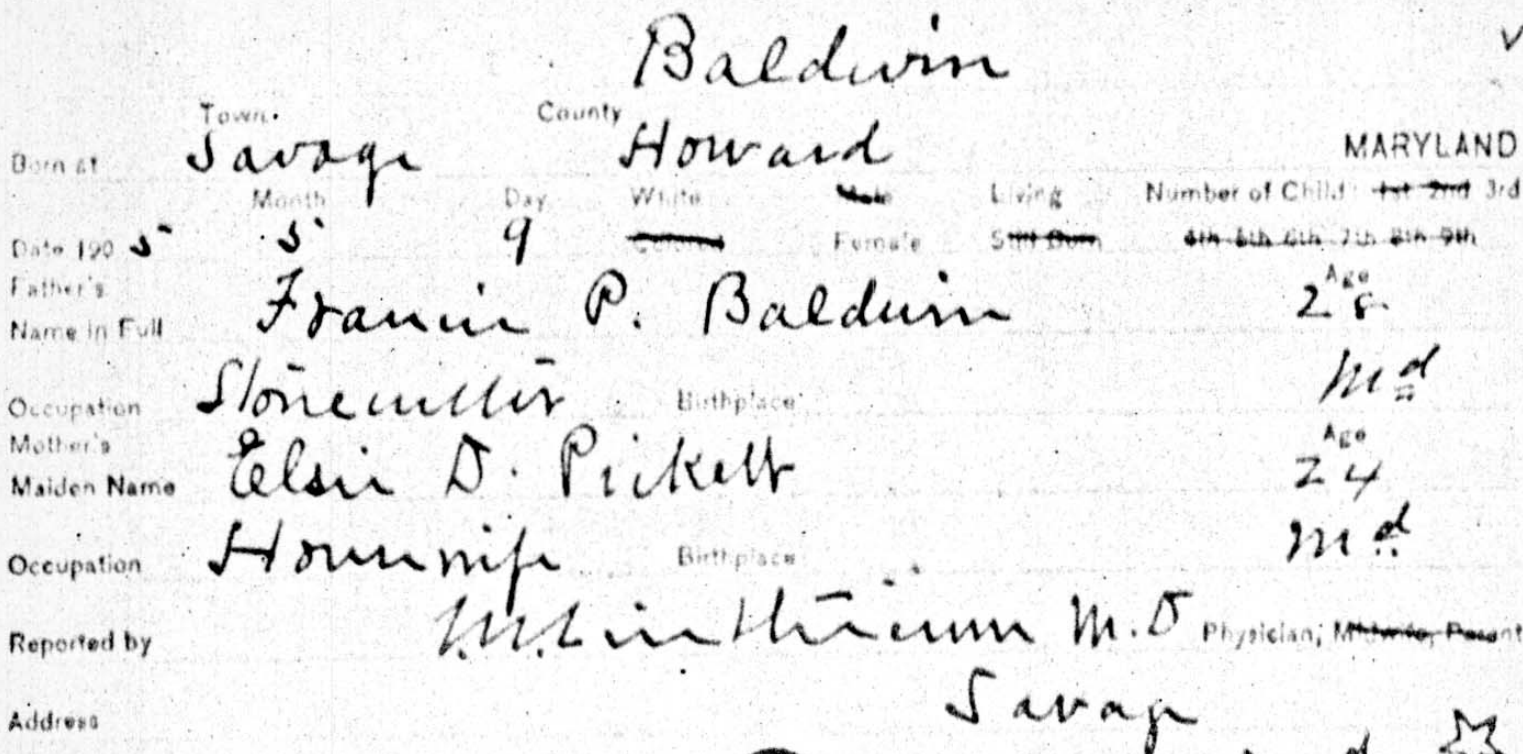 Baldwin
Town. County
Born at Savage Howard MARYLAND
Month Day White Male Living Number of Child 1st 2nd 3rd
Date 190 5 5 9 Colored Female Still Born 4th 5th 6th 7th 8th 9th
Father's Age
Name in Full Francis P. Baldwin 28
Occupation Stonecutter Birthplace Md
Mother's Age
Maiden Name Elsie D. Pickett 24
Occupation Housewife Birthplace Md
Reported by Linthicum M.D Physician, Midwife, Parent
Address Savage